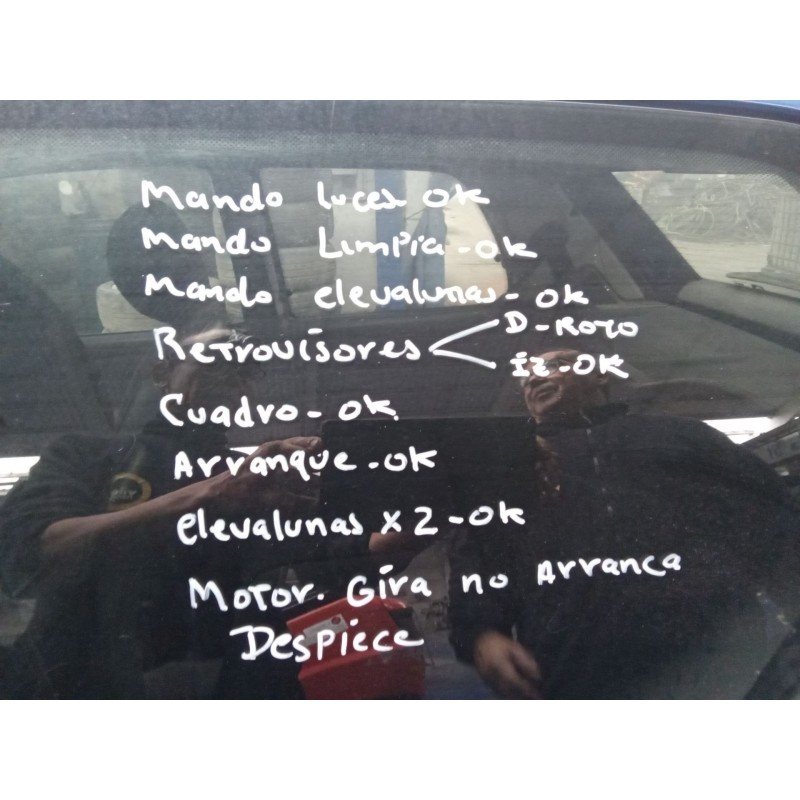 Mando luces OK
Mando Limpia - OK
Mando elevalunas - OK
Retrovisores D - Roto
iz - OK
Cuadro - OK.
Arranque - OK
elevalunas x 2 - OK
Motor. Gira no Arranca
Despiece